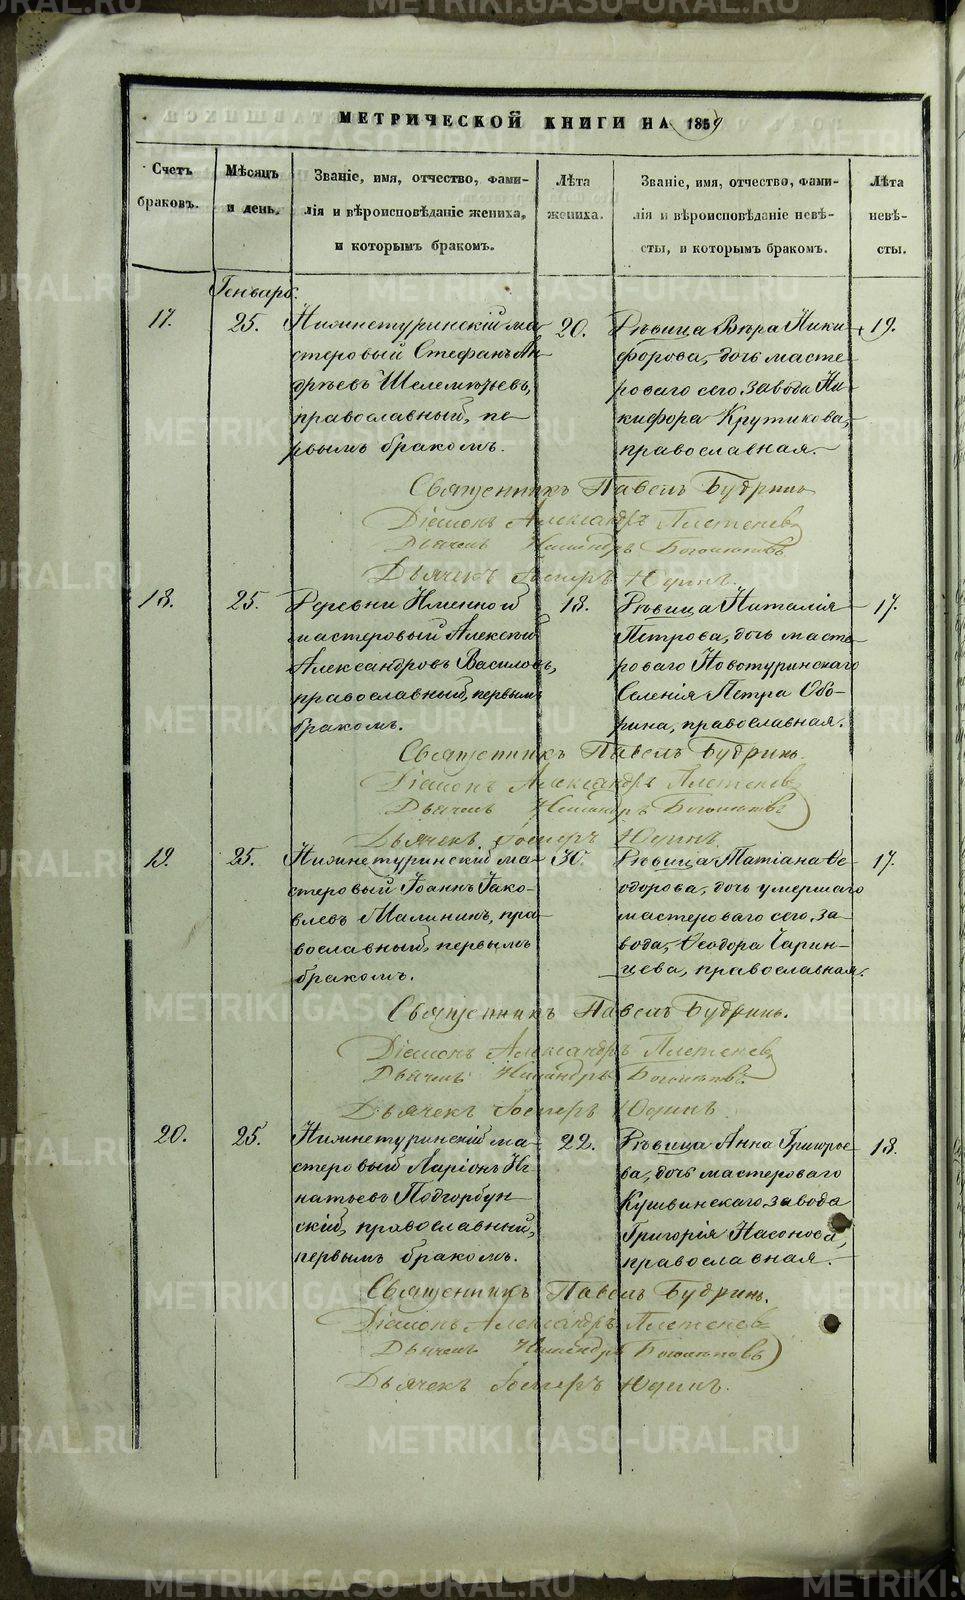 МЕТРИЧЕСКОЙ КНИГИ НА 1859
Счетъ
браковъ.
Мѣсяцъ
и день.
Званіе, имя, отчество, фами-
лія и вѣроисповѣданіе жениха,
и которымъ бракомъ.
Лѣта
жениха.
Званіе, имя, отчество, фами-
лія и вѣроисповѣданіе невѣ-
сты, и которымъ бракомъ.
Лѣта
невѣ-
сты.
Генварь.
17.
25.
Нижнетуринскій ма-
стеровый Стефанъ Ан-
дрѣевъ Шелемѣтьевъ,
православный, пе-
рвымъ бракомъ.
20.
Дѣвица Вѣра Ники-
форова, дочь масте-
роваго сего завода Ни-
кифора Крутикова,
православная.
19.
Священникъ Павелъ Будринъ
Діаконъ Александръ Плетенев
Дьячекъ Никандръ
Дьячекъ Юдинъ.
18.
25.
Деревни Именной
мастеровый Алексѣй
Александровъ Василовъ,
православный, первымъ
бракомъ.
18.
Дѣвица Наталія
Петрова, дочь масте-
роваго Новотуринскаго
Селенія Петра Обо-
рина, православная.
17.
Священникъ Павелъ Будринъ.
Діаконъ Александръ Плетенев
Дьячекъ Никандръ
Дьячекъ Юдинъ.
19.
25.
Нижнетуринскій ма-
стеровый Іоаннъ Іако-
влевъ Малининъ, пра-
вославный, первымъ
бракомъ.
30.
Дѣвица Татіана Ѳе-
одорова, дочь умершаго
мастероваго сего за-
вода, Ѳеодора Чарин-
цева, православная.
17.
Священникъ Павелъ Будринъ.
Діаконъ Александръ Плетенев
Дьячекъ Никандръ
Дьячекъ Юдинъ
20.
25.
Нижнетуринскій ма-
стеровый Ларіонъ Иг-
натьевъ Подгорбун-
скій, православный,
первымъ бракомъ.
22.
Дѣвица Анна Григорье-
ва, дочь мастероваго
Кушвинскаго завода
Григорія Насонова,
православная.
18.
Священникъ Павелъ Будринъ.
Діаконъ Александръ Плетенев
Дьячекъ Никандръ
Дьячекъ Юдинъ.
METRIKI.GASO-URAL.RU